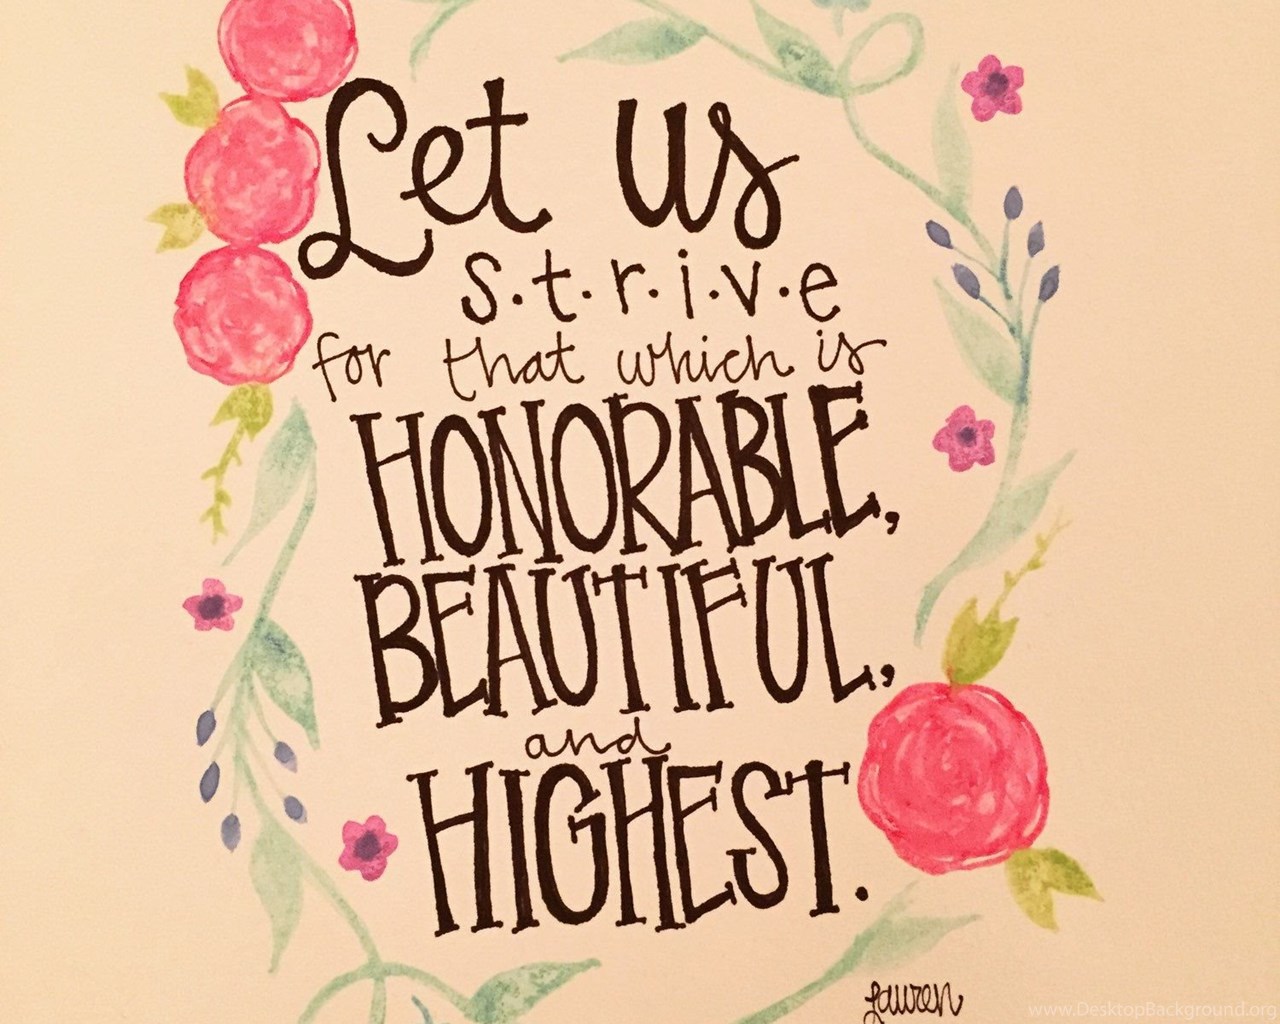 Let us
s.t.r.i.v.e
for that which is
HONORABLE,
BEAUTIFUL,
and
HIGHEST.
Lauren
www.DesktopBackground.org